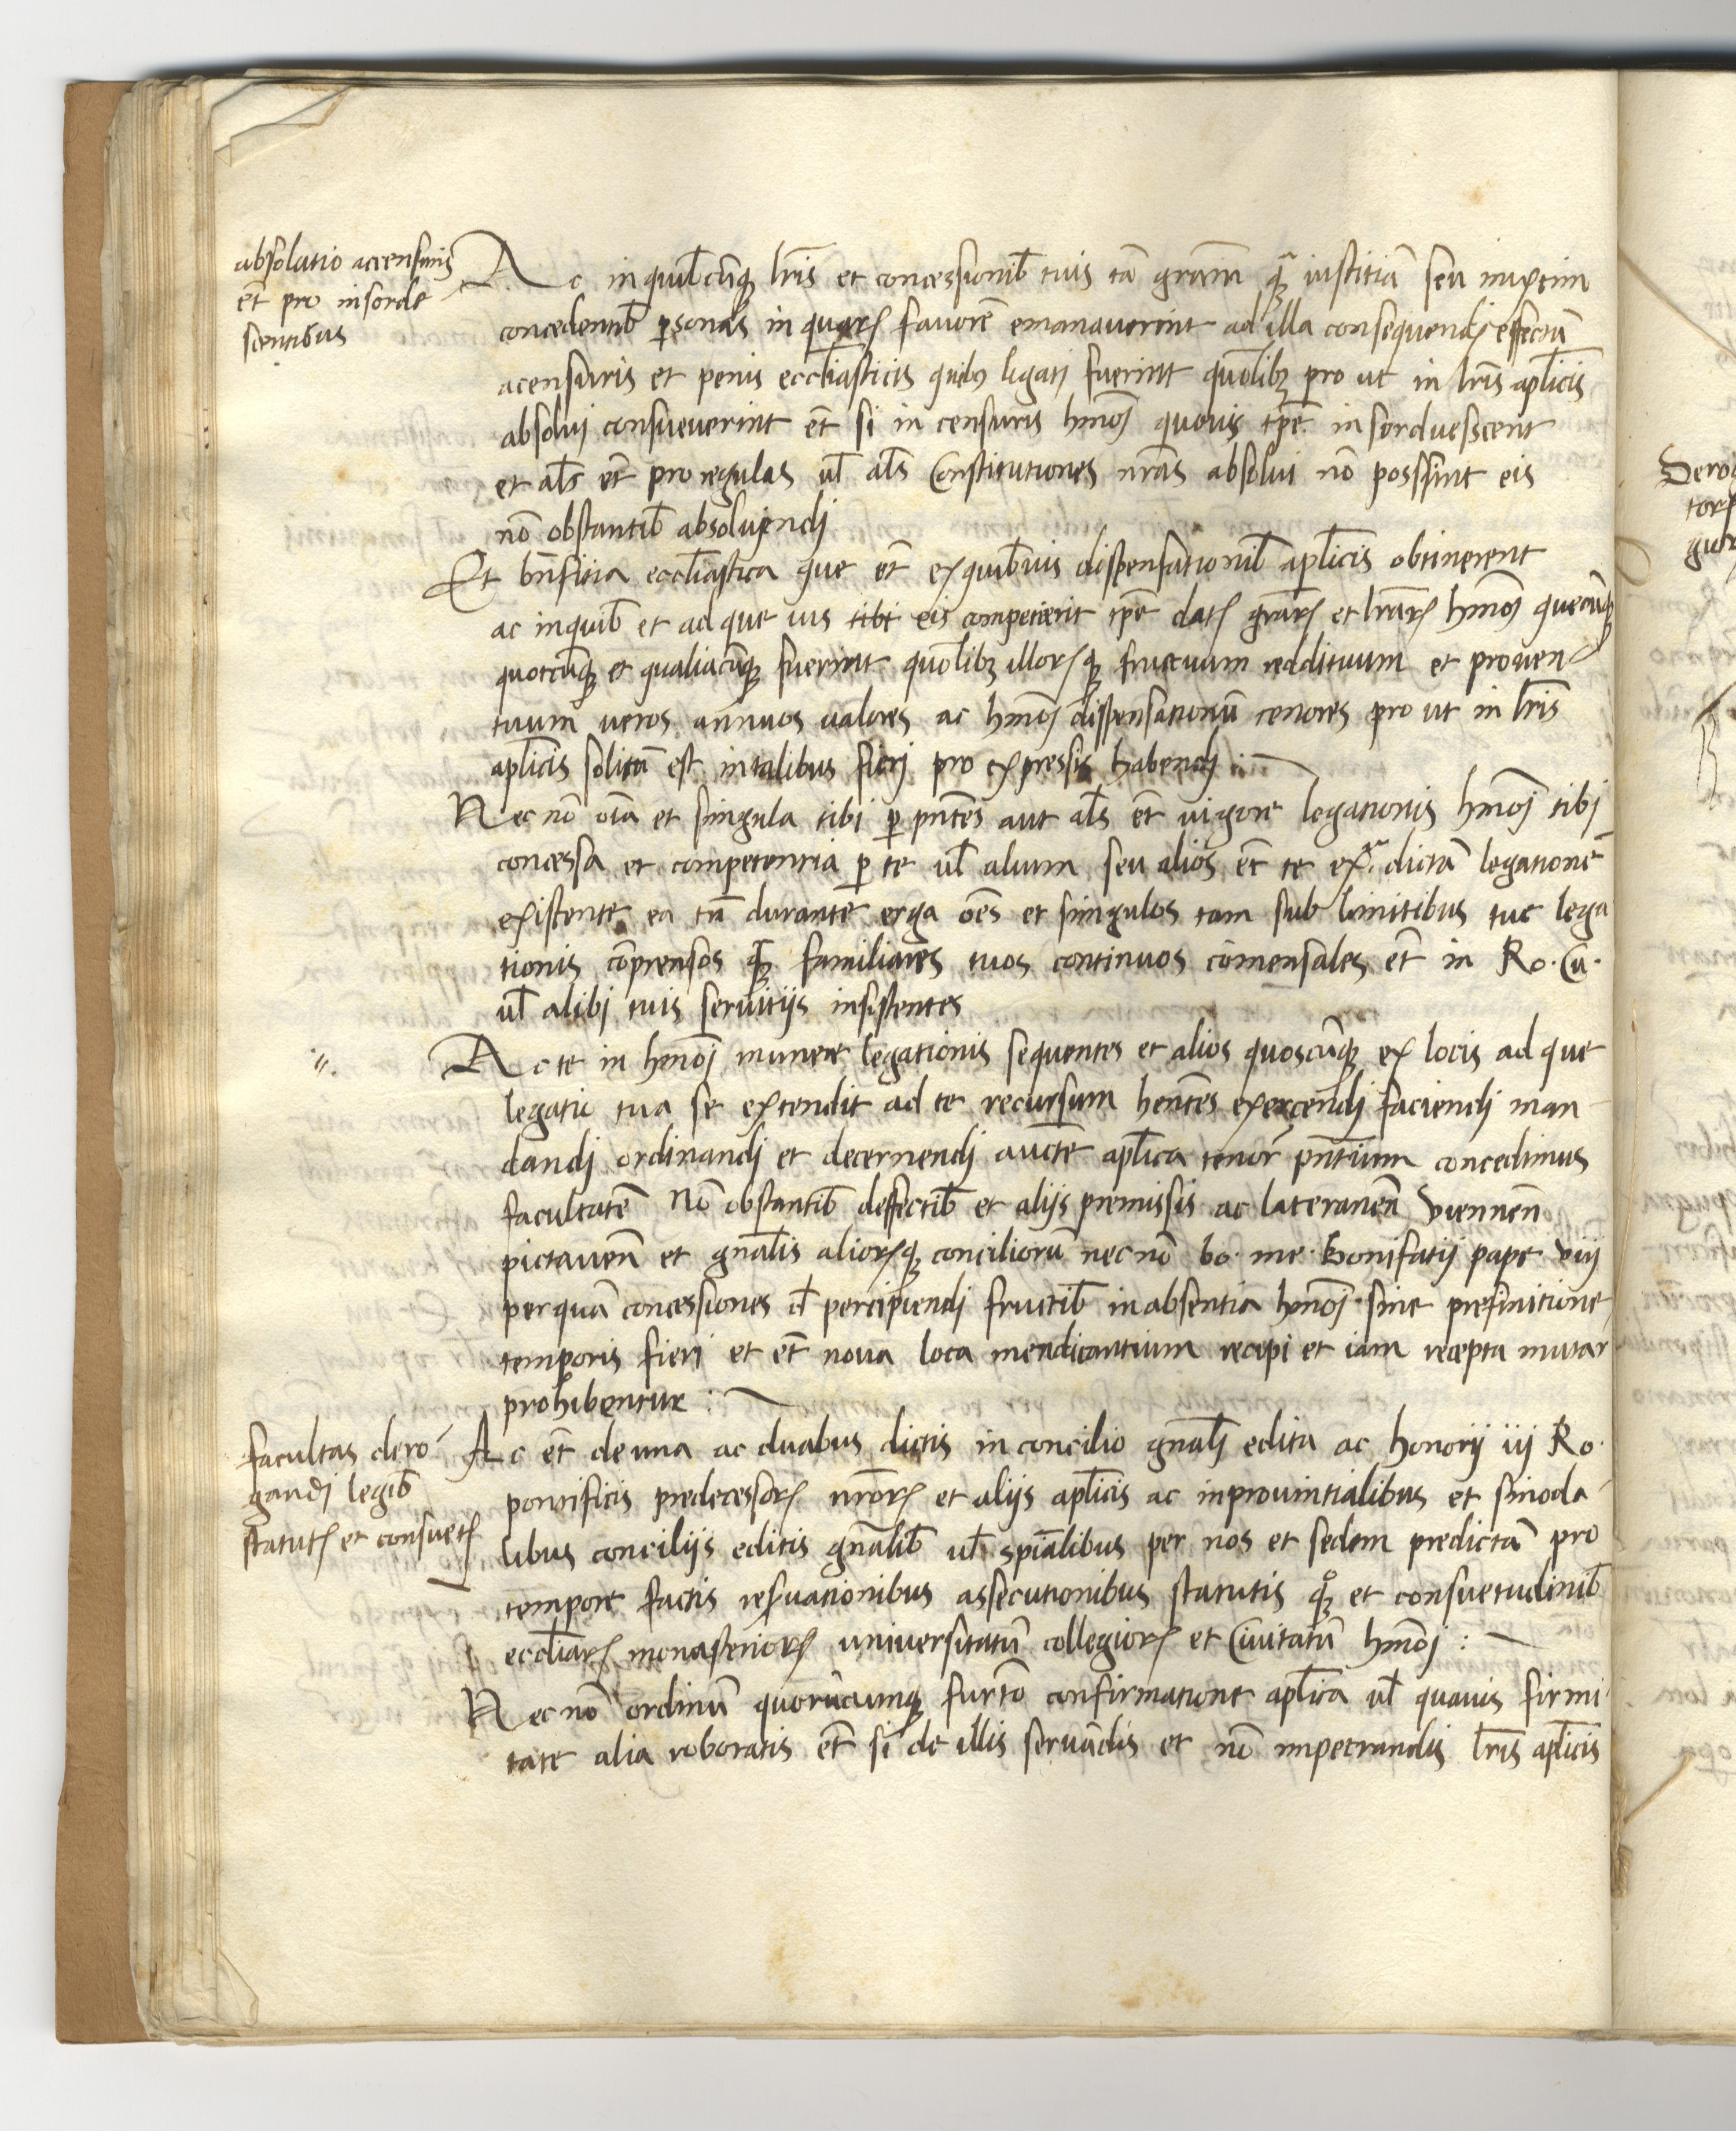 absolutio acensuris
et̃ pro insorde
scentibus
Ac in quibuscũqꝫ lr̃is et concessionib̃ tuis tã gratiam qꝫ̃ iustitiã seu mixtim
concedentib̃ ꝑsonas in quarꝝ fauorẽ emanauerint ad illa consequendꝝ effectũ
acensuris et penis eccl̃iasticis quibꝰ ligati fuerint quol̃ibꝫ pro ut in lr̃is apl̃icis
absolui consueuerint et̃ si in censuris hm̃oj quouis tp̃e in sorduescent
et al̃s et̃ pro regulas ul̃ al̃s Constitutiones nr̃as absolui nõ possint eis
nõ obstantib̃ absoluendj
Et bñfitia eccl̃iastica que et̃ ex quib̃uis dispensationib̃ apl̃icis obtinerent
ac inquib̃ et ad que ius tibi eis competierit tp̃e datꝝ gr̃arꝝ et lr̃arꝝ hm̃oj quecũqꝫ
quotcũqꝫ et qualiacũqꝫ fuerint quol̃ibꝫ illorꝝqꝫ fructuum reddituum et prouen
tuum ueros annuos ualores ac hm̃oj dispensationũ tenores pro ut in lr̃is
apl̃icis solitã est intalibus fierj pro expressis habendj :
Nec nõ oĩa et singula tibi ꝑ pñtes aut al̃s et̃ uigore legationis hm̃oj tibj
concessa et competentia ꝑ te ul̃ alium seu alios et̃ te exᵃ dictã legationẽ
existente ea tñ durante erga oẽs et singulos tam sub limitibus tue lega
tionis cõprensos qꝫ̃ familiares tuos continuos cõmensales et̃ in Ro. Cu.
ul̃ alibj tuis seruitijs insistentes
".
Ac te in hm̃oj munere legationis sequentes et alios quoscũqꝫ ex locis ad que
legatio tua se extendit ad te recursum hẽntes exercendj faciendj man
dandj ordinandj et decernendj auctẽ apl̃ica tenor̃ pñtium concedimus
facultatẽ Nõ obstantib̃ deffectib̃ et alijs premissis ac lateraneñ vienneñ
pictaueñ et gñalis aliorꝝqꝫ conciliorũ nec nõ bo. me. Bonifatij pape viij
per quã concessiones ul̃ percipiendj fructib̃ in absentia hm̃oj sine prefinitione
temporis fierj et et̃ noua loca mendicantium recipi et iam recepta mutar
prohibentur :
facultas dero
gandj legib̃
statutꝝ et consuetꝝ
Ac et̃ de una ac duabus dictis in concilio gñalj edita ac honorij iij Ro.
pontificis predecessorꝝ nr̃orꝝ et alijs apl̃icis ac inprouintialibus et sinoda
libus concilijs editis gñalib̃ ul̃ sp̃ialibus per nos et sedem predictã pro
tempore factis reseruationibus assecutionibus statutis qꝫ̊ et consuetudinib̃
eccl̃iarꝝ monasteriorꝝ uniuersitatũ collegiorꝝ et Ciuitatũ hm̃oj :
Nec nõ ordinũ quorũcumqꝫ iurtõ confirmatione apl̃ica ul̃ quauis firmi
tate alia roboratis et̃ si de illis seruãdis et nõ impetrandis lr̃is apl̃icis